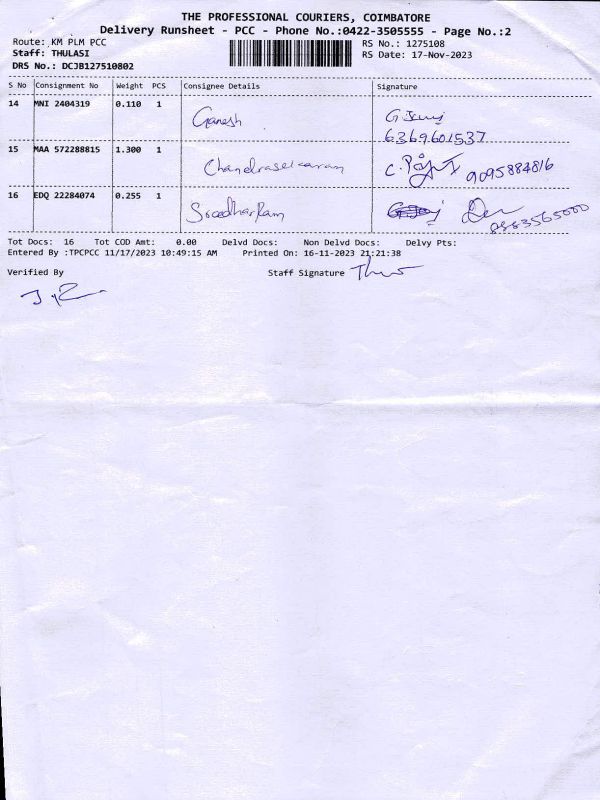 THE PROFESSIONAL COURIERS, COIMBATORE
Delivery Runsheet - PCC - Phone No.:0422-3505555 - Page No.:2
Route: KM PLM PCC RS No.: 1275108
Staff: THULASI RS Date: 17-Nov-2023
DRS No.: DCJB127510802
S No Consignment No Weight PCS Consignee Details Signature
14 MNI 2404319 0.110 1 Ganesh
6369601537
15 MAA 572288815 1.300 1 Chandrasekaran 9095884816
16 EDQ 22284074 0.255 1 SreedharRam
Tot Docs: 16 Tot COD Amt: 0.00 Delvd Docs: Non Delvd Docs: Delvy Pts:
Entered By :TPCPCC 11/17/2023 10:49:15 AM Printed On: 16-11-2023 21:21:38
Verified By Staff Signature